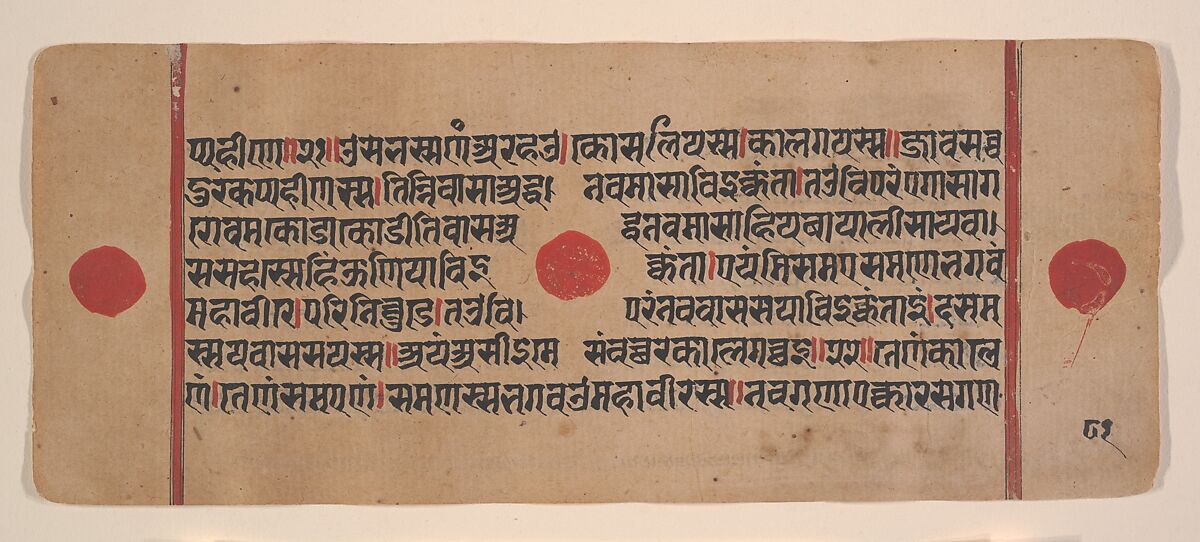 प्पहीणे॥२१॥उसभस्सणंअरहउ।कोसलियस्स।कालगयस्स॥जावसव्व
दुरकप्पहीणस्स।तिन्निवासाअद्ध। नवमासाविइक्कंता।तउविपरंएगासाग
रोवमकोडाकोडीतिवासअ द्धनवमासाहियबायालीसायवा।
ससहस्सेहिंऊणियाविइ क्कंता।एयंमिसमएसमणेभगवं
महावीरे।परिनिव्वुडे।तउवि। परंनववाससयाविइक्कंताइं।दसम
स्सयवाससयस्स॥अयंअसीइमे संवच्छरेकालेगच्छइ॥२२॥तेणंकाले
णं।तेणंसमएणं।समणस्सभगवउमहावीरस्स॥नवगणाएक्कारसगण
८१